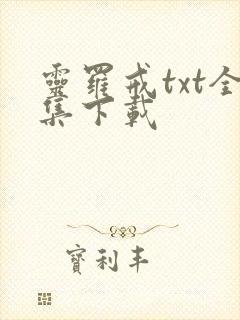 靈羅戒txt全
集下載
寶利丰